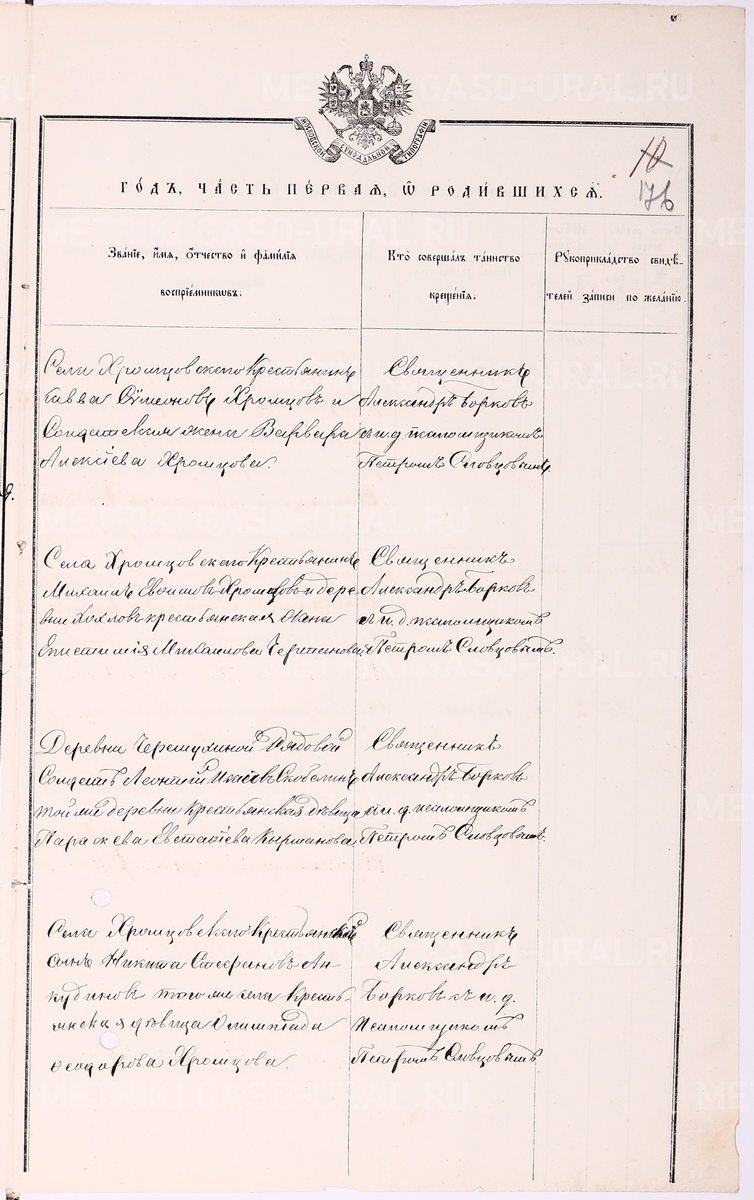 МОСКОВСКОЙ СѴНОДАЛЬНОЙ ТИПОГРАФІИ
10
176
ГОДЪ, ЧАСТЬ ПЕРВАЯ, Ѡ РОДИВШИХСЯ.
Званіе, имя, отчество и фамилія воспріемниковъ.
Кто совершалъ таинство крещенія.
Рукоприкладство свидѣтелей записи по желанію.
Села Хромцовскаго Крестьянинъ
Савва Сѵмеоновъ Хромцовъ и
Солдатская жена Варвара
Алексіева Хромцова.
Священникъ
Александръ Борковъ
съ и. д. псаломщикомъ
Петромъ Словцовымъ.
Села Хромцовскаго Крестьянинъ
Михаилъ Хромцовъ и дере
вни Хохловъ крестьянская жена
Епистимія Михаилова Черепанова.
Священникъ
Александръ Борковъ
съ и. д. псаломщикомъ
Петромъ Словцовымъ.
Деревни Черемухиной Рядовой
Солдатъ Леонтій Исаіевъ Скобелинъ
той же деревни Крестьянская дѣвица
Параскева Евстафіева Кырчанова.
Священникъ
Александръ Борковъ
съ и. д. псаломщикомъ
Петромъ Словцовымъ.
Села Хромцовскаго Крестьянскій
сынъ Никита Стефановъ Ан-
кудиновъ того же села Кресть-
янская дѣвица Олимпіада
Ѳеодорова Хромцова.
Священникъ
Александръ
Борковъ съ и. д.
Псаломщикомъ
Петромъ Словцовымъ.
METRIKI.GASO-URAL.RU